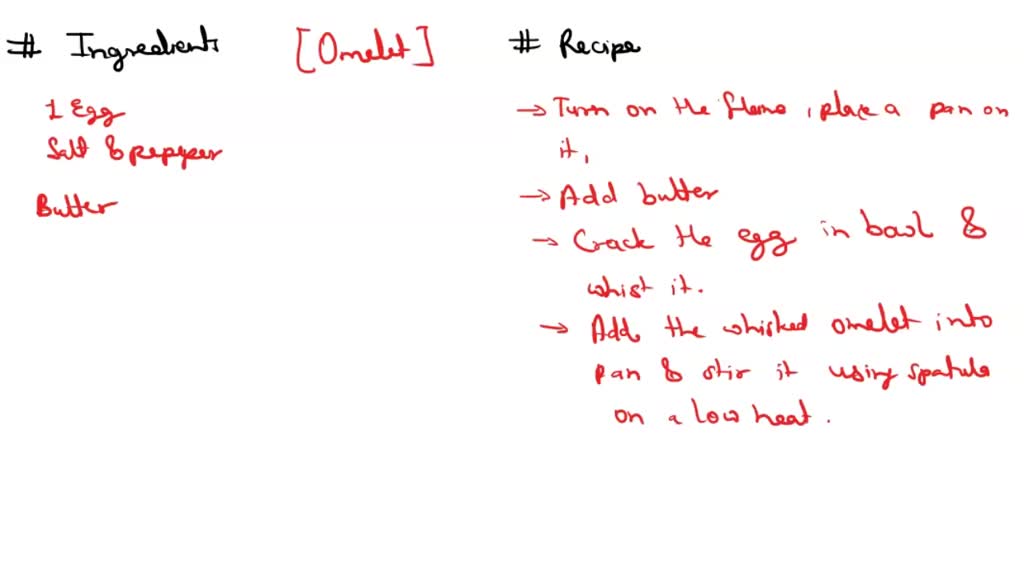 # Ingredients
[Omelet]
1 Egg
Salt & pepper
Butter
# Recipe
→ Turn on the flame, place a pan on
it,
→ Add butter
→ Crack the egg in bowl &
whist it.
→ Add the whisked omelet into
pan & stir it using spatula
on a low heat.